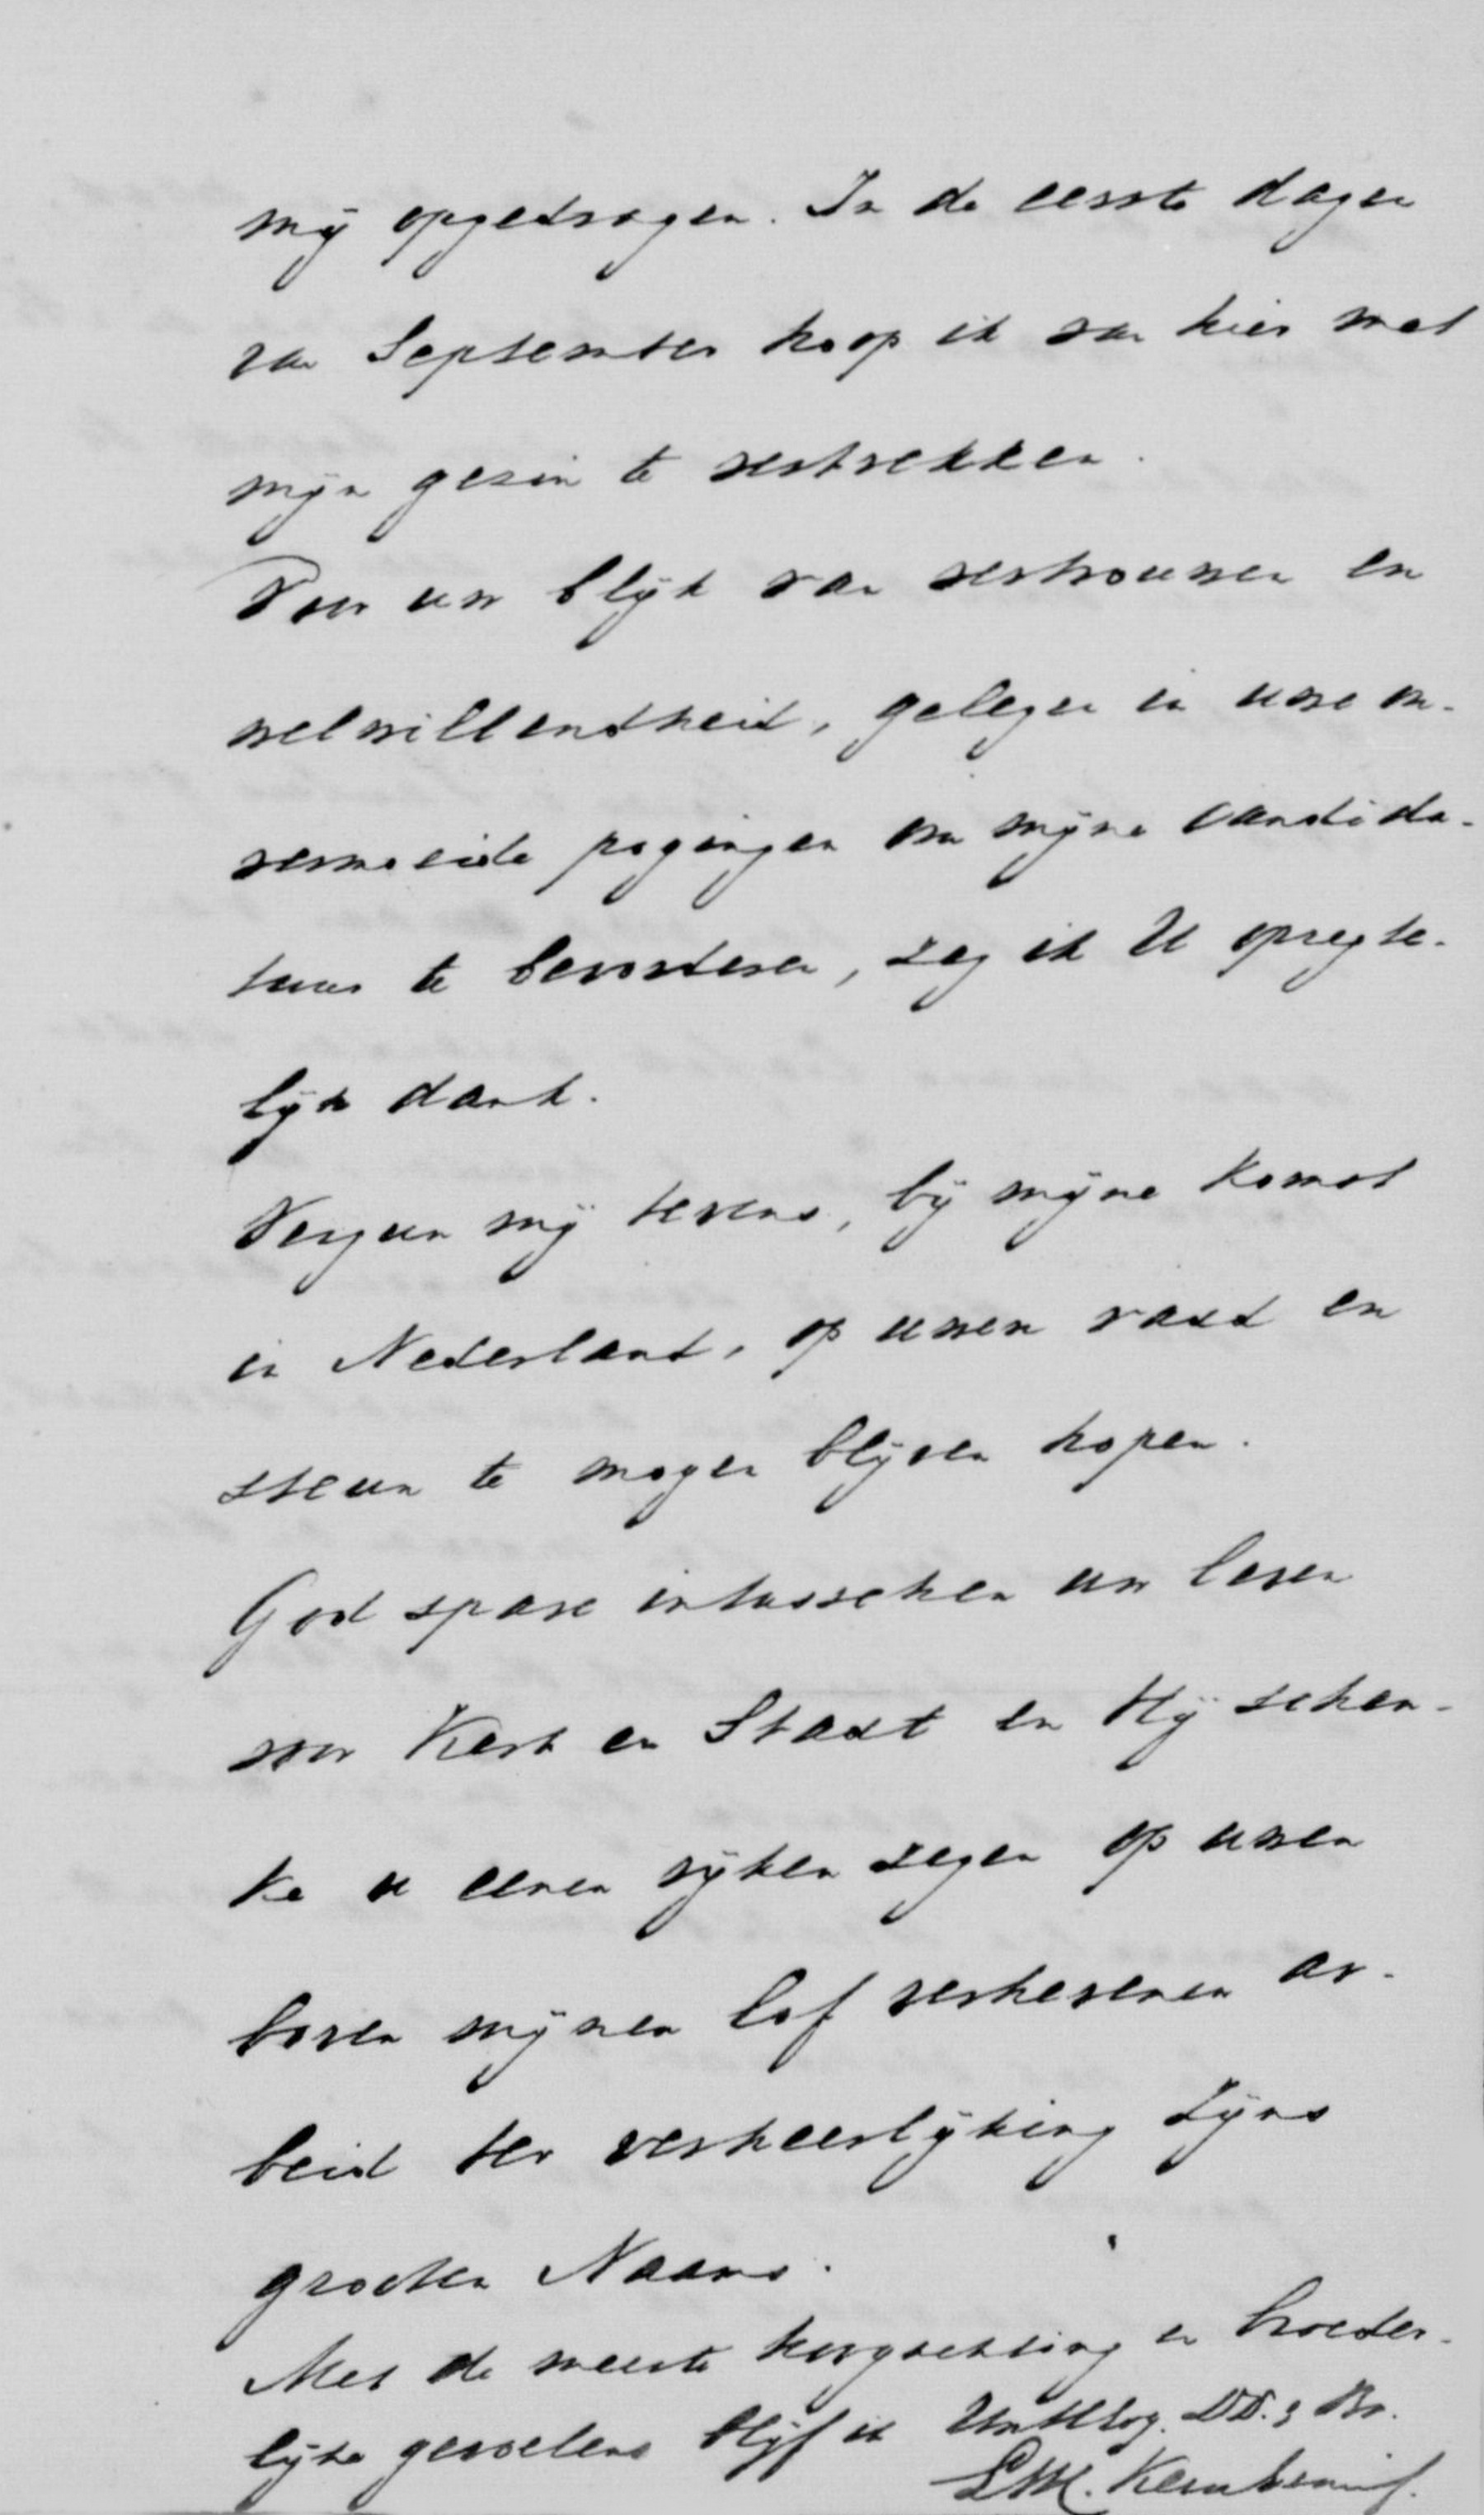 mij opgedragen. In de eerste dagen
van September hoop ik van hier met
mijn gezin te vertrekken.
Voor uw blijk van vertrouwen en
welwillendheid, gelegen in uwe on-
vermoeide pogingen om mijne candida-
tuur te bevorderen, zeg ik U opregte-
lijk dank.
Vergun mij tevens, bij mijne komst
in Nederland, op uwen raad en
steun te mogen blijven hopen.
God spare intusschen uw leven
voor Kerk en Staat en Hij schen-
ke u eenen rijken zegen op uwen
boven mijnen lof verhevenen ar-
beid ter verheerlijking Zijns
grooten Naams.
Met de meeste hoogachting en broeder-
lijke gevoelens blijf ik UwHEog. DD. & Br.
L.W.